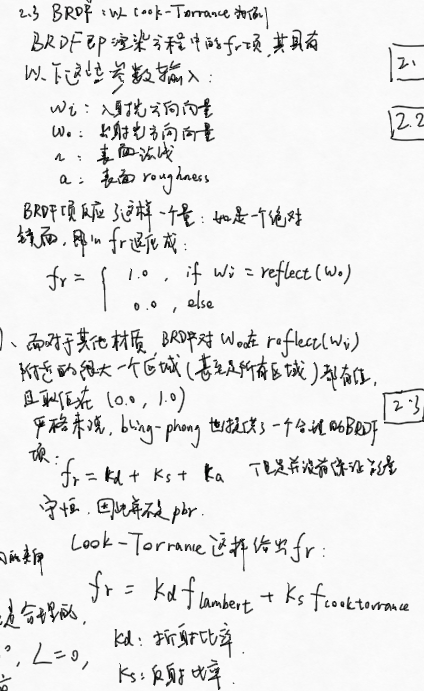 2.3 BRDF:以 Cook-Torrance 为例
BRDF即渲染方程中的fr项,其具有
以下这些参数输入:
wi:入射光方向向量
wo:出射光方向向量
n:表面法线
a:表面 roughness
BRDF项反应了这样一个量:如是一个绝对
镜面,那么 fr 退化成:
fr = { 1.0 , if wi = reflect(wo)
0.0 , else
而对于其他材质 BRDF对 wo在 reflect(wi)
附近的很大一个区域(甚至是所有区域)都有值,
且取值在 (0.0, 1.0)
严格来说, bling-phong 也提供了一个合理的BRDF
项:
fr = kd + ks + ka 但是并没有保证能量
守恒,因此并不是 pbr.
Cook-Torrance 这样给出 fr:
fr = kd flambert + ks fcooktorrance
kd:折射比率
ks:反射比率
2.
2.2
2.3
合理的,
L=0,